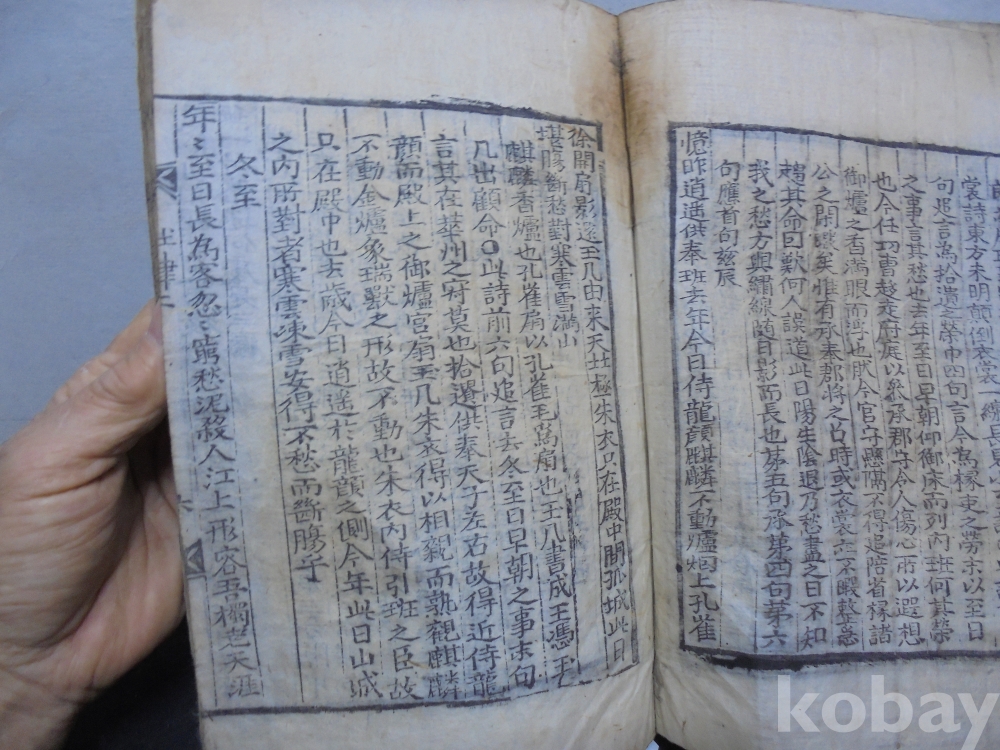 裳詩東方未明顛倒衣裳
句追言為拾遺之榮中四句言今為掾吏之勞末以至日
之事言其愁也去年至日早朝仰御床而列內班何其榮
也今任功曹趍走府庭以參承郡守令人傷心所以遐想
御爐之香滿眼而淂也昳今官守懸隔不得追陪省掾諸
公之間譏矣惟有承奉郡將之占時或衣裳亦不暇整急
趨其命回歎何人誤道此日陽生陰退乃愁盡之日不知
我之愁方與繡線隨日影而長也第五句承第四句第六
句應首句茲辰
憶昨逍遥供奉班去年今日侍龍顔麒麟不動爐烟上孔雀
徐開扇影還玉几由来天北極朱衣只在殿中間孤城此日
堪腸斷愁對寒雲雪滿山
麒麟香爐也孔雀扇以孔雀毛為扇也玉几書成王憑玉
几出顧命○此詩前六句追言去冬至日早朝之事末句
言其在華州之寂莫也拾遺供奉天子左右故得近侍龍
顔而殿上之御爐宮扇玉几朱衣得以相親而熟觀麒麟
不動金爐象瑞獸之形故不動也朱衣內侍引班之臣故
只在殿中也去歲今日逍遥於龍顔之側今年此日山城
之内所對者寒雲凍雪安得不愁而斷膓乎
冬至
年〻至日長為客忽〻窮愁泥殺人江上形容吾獨老天涯
杜律
六
kobay